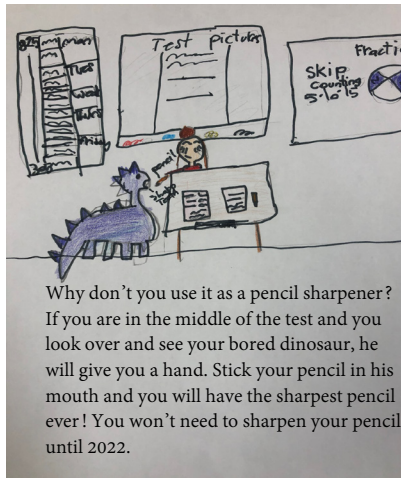 8:25 Mon
Tues
Wed
Thurs
Friday
Test pictures
Fracti
Skip
counting
5 10 15
pencil
Why don’t you use it as a pencil sharpener?
If you are in the middle of the test and you
look over and see your bored dinosaur, he
will give you a hand. Stick your pencil in his
mouth and you will have the sharpest pencil
ever! You won’t need to sharpen your pencil
until 2022.